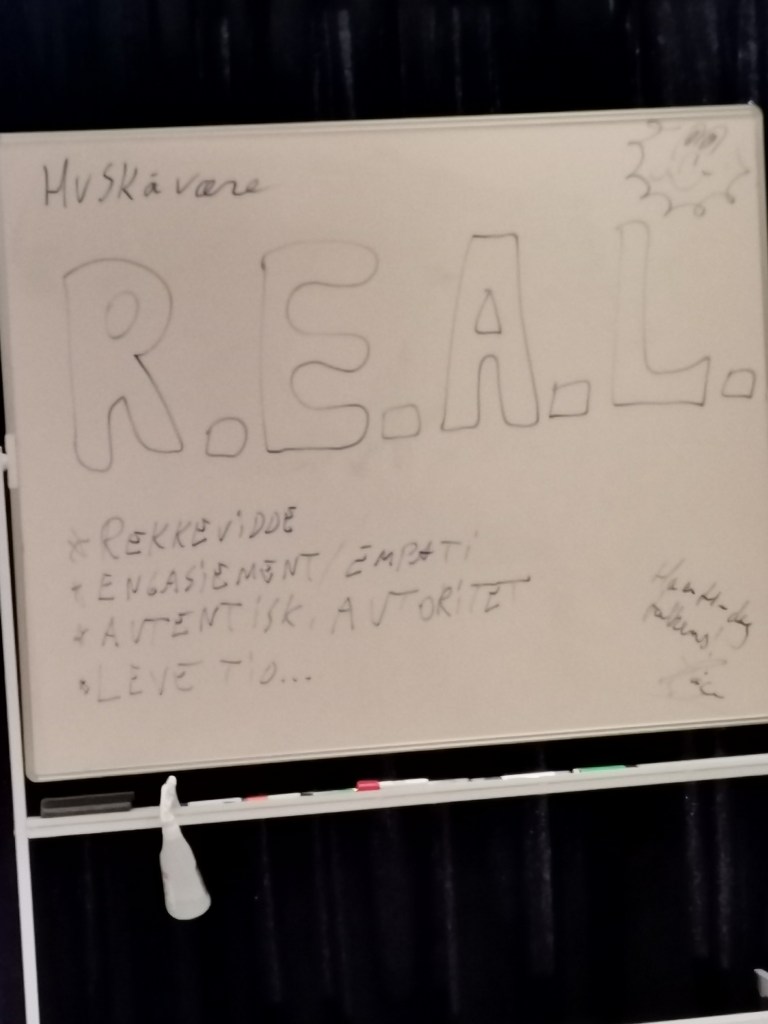 HUSK å være
R.E.A.L.
* REKKEVIDDE
* ENGASJEMENT / EMPATI
* AUTENTISK, AUTORITET
* LEVETID...